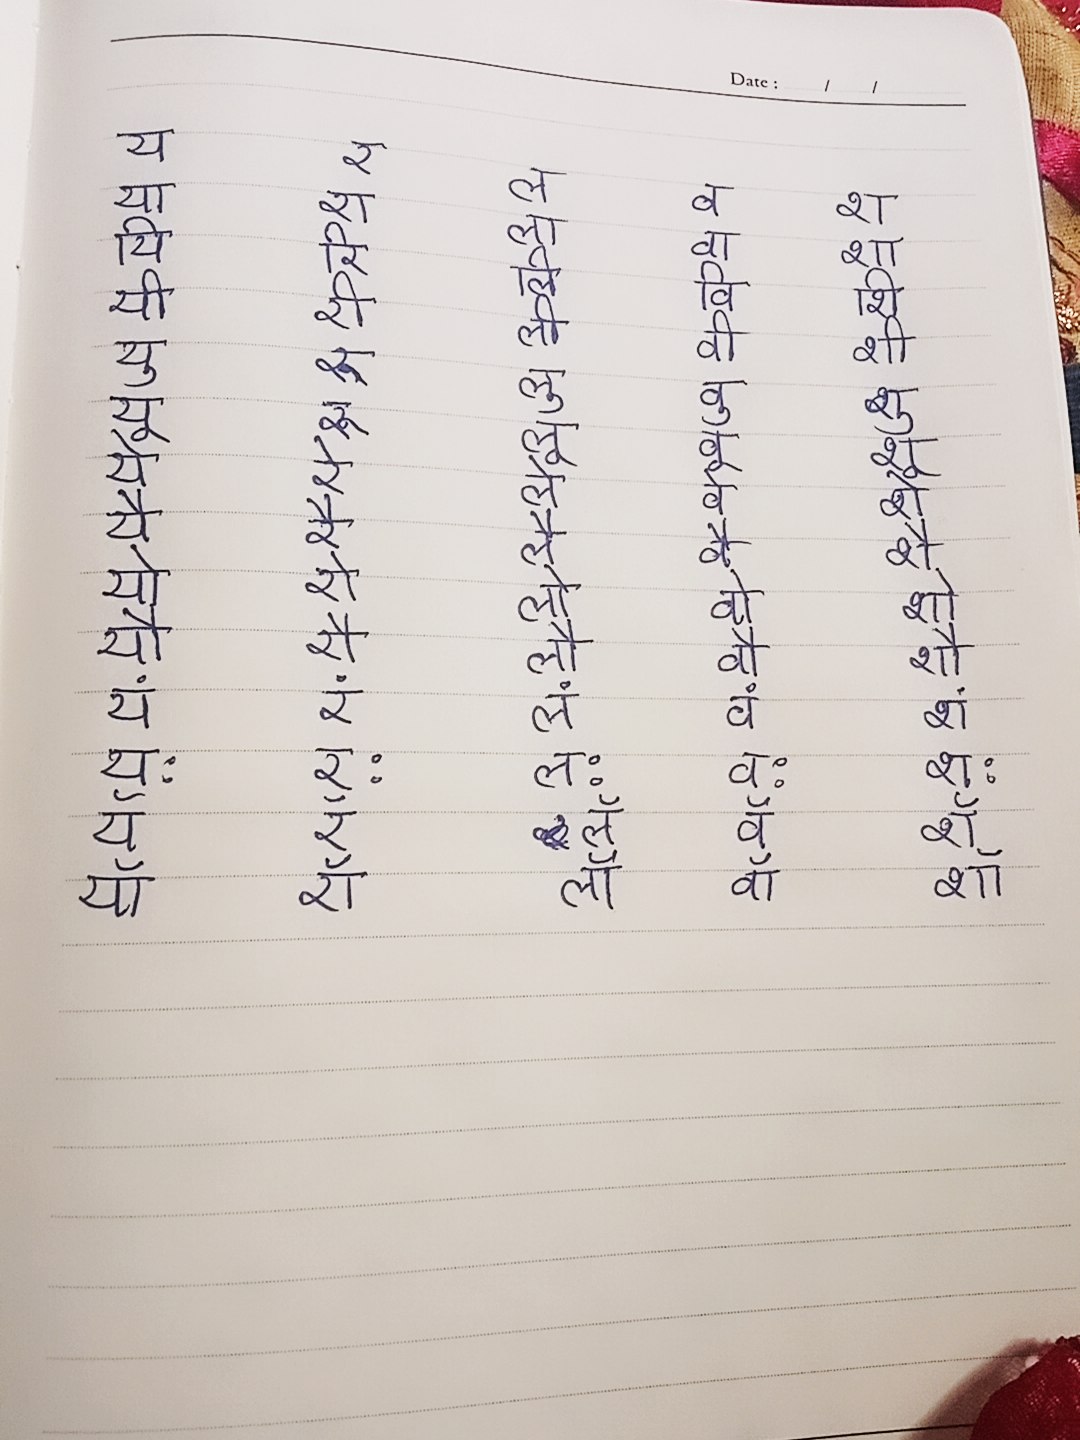 Date : / /
य र ल व श
या रा ला वा शा
यि रि लि वि शि
यी री ली वी शी
यु रु लु वु शु
यू रू लू वू शू
ये रे ले वे शे
यै रै लै वै शै
यो रो लो वो शो
यौ रौ लौ वौ शौ
यं रं लं वं शं
यः रः लः वः शः
यॅ रॅ लॅ वॅ शॅ
यॉ रॉ लॉ वॉ शॉ